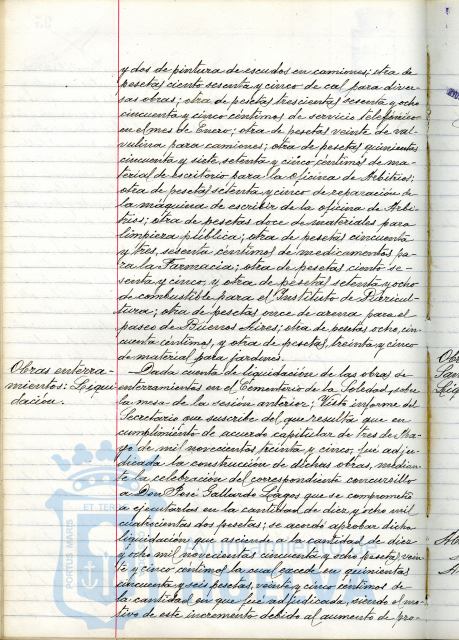 y dos de pintura de escudos en camiones; otra de
pesetas ciento sesenta y cinco de cal para diver-
sas obras; otra de pesetas trescientas sesenta y ocho
cincuenta y cinco céntimos de servicio telefónico
en el mes de Enero; otra de pesetas veinte de val-
vulina para camiones; otra de pesetas quinientas
cincuenta y siete, setenta y cinco céntimos de ma-
terial de escritorio para la oficina de Arbitrios;
otra de pesetas setenta y cinco de reparación de
la máquina de escribir de la oficina de Arbi-
trios; otra de pesetas doce de materiales para
limpieza pública; otra de pesetas cincuenta
y tres, sesenta céntimos de medicamentos pa-
ra la Farmacia; otra de pesetas ciento se-
senta y cinco, y otra de pesetas setenta y ocho
de combustible para el Instituto de Puericul-
tura; otra de pesetas once de arena para el
paseo de Buenos Aires; otra de pesetas ocho, cin-
cuenta céntimos, y otra de pesetas, treinta y cinco
de material para jardines.
Obras enterra-
mientos: Liqui-
dación.
—Dada cuenta de liquidación de las obras de
enterramientos en el Cementerio de la Soledad, sobre
la mesa de la sesión anterior; Visto informe del
Secretario que suscribe del que resulta que en
cumplimiento de acuerdo capitular de tres de Ma-
yo de mil novecientos treinta y cinco, fué adju-
dicada la construcción de dichas obras, median-
te la celebración del correspondiente concursillo
a Don José Gallardo Lagos que se comprometió
a ejecutarlas en la cantidad de diez y ocho mil
cuatrocientas dos pesetas; se acordó aprobar dicha
liquidación que asciende a la cantidad de diez
y ocho mil novecientas cincuenta y ocho pesetas, vein-
te y cinco céntimos la cual excede en quinientas
cincuenta y seis pesetas, veinte y cinco céntimos de
la cantidad en que fué adjudicada, siendo el mo-
tivo de este incremento debido al aumento de pro-
PORTUS MARIS
ET TERR